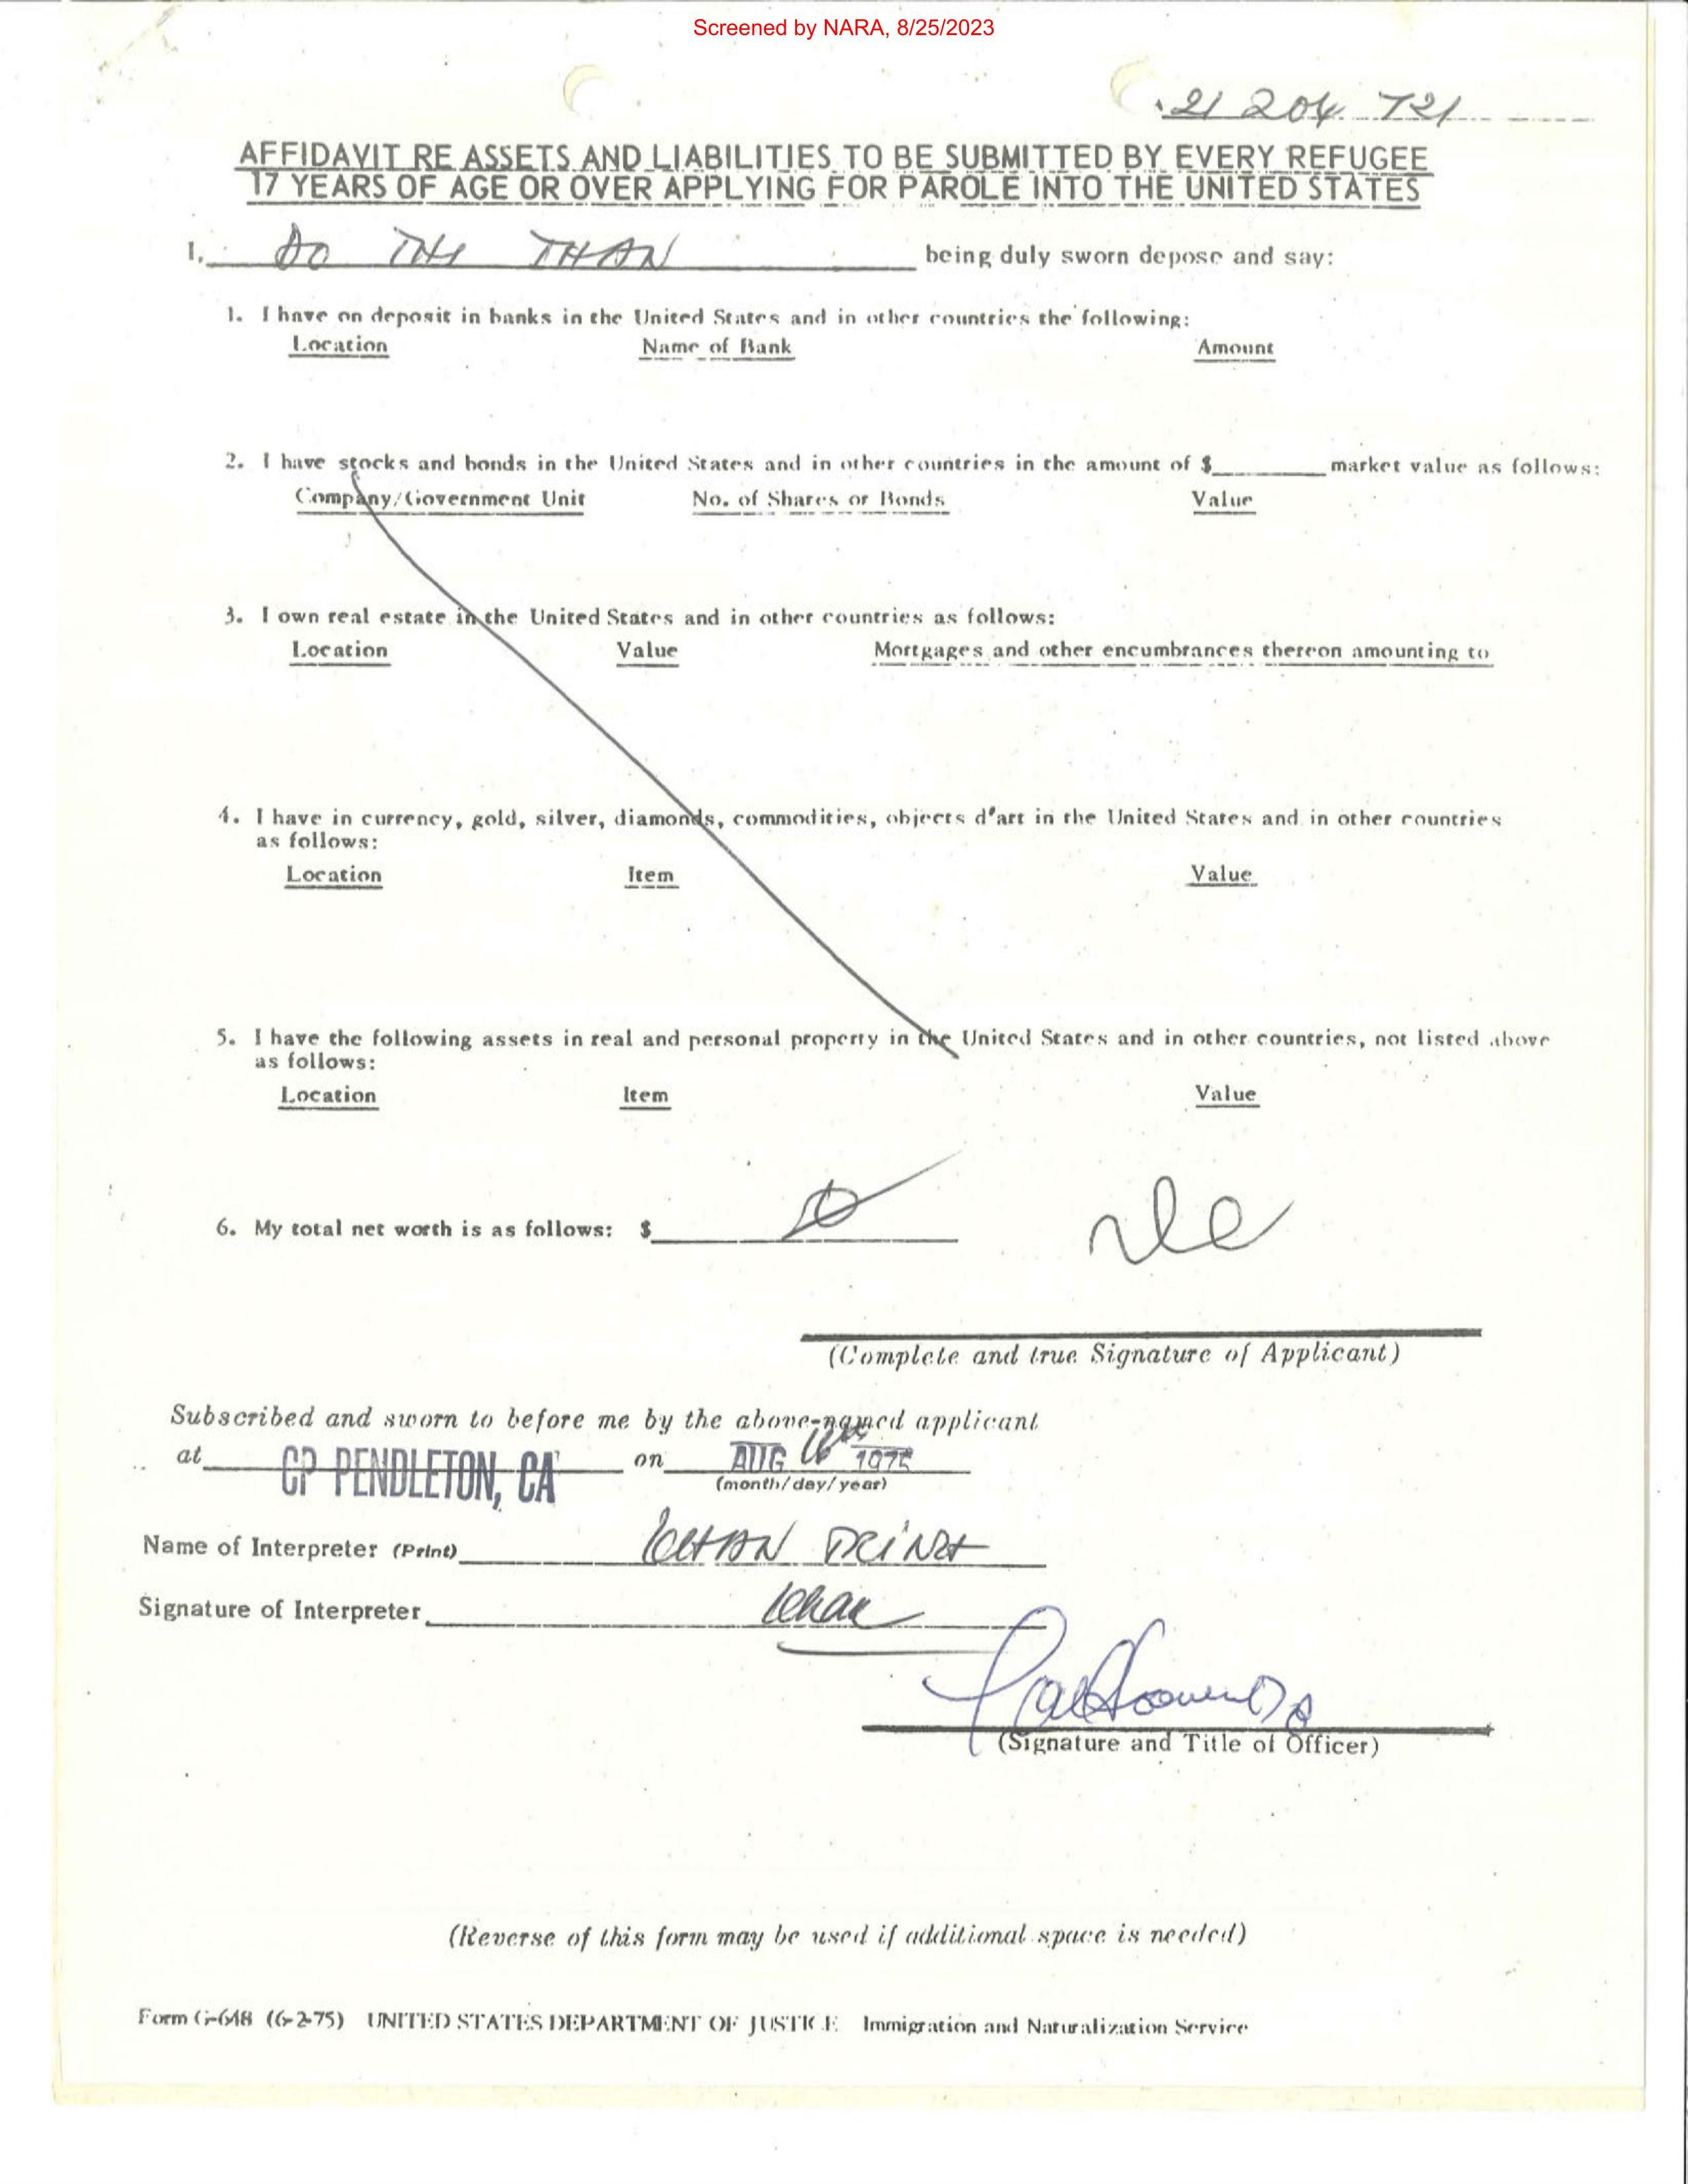 Screened by NARA, 8/25/2023
21 204 721
AFFIDAVIT RE ASSETS AND LIABILITIES TO BE SUBMITTED BY EVERY REFUGEE
17 YEARS OF AGE OR OVER APPLYING FOR PAROLE INTO THE UNITED STATES
I, DO THI THAN being duly sworn depose and say:
1. I have on deposit in banks in the United States and in other countries the following:
Location Name of Bank Amount
2. I have stocks and bonds in the United States and in other countries in the amount of $ market value as follows:
Company/Government Unit No. of Shares or Bonds Value
3. I own real estate in the United States and in other countries as follows:
Location Value Mortgages and other encumbrances thereon amounting to
4. I have in currency, gold, silver, diamonds, commodities, objects d'art in the United States and in other countries
as follows:
Location Item Value
5. I have the following assets in real and personal property in the United States and in other countries, not listed above
as follows:
Location Item Value
6. My total net worth is as follows: $ 0
(Complete and true Signature of Applicant)
Subscribed and sworn to before me by the above-named applicant
at CP PENDLETON, CA on AUG 1975
(month/day/year)
Name of Interpreter (Print) KHAN
Signature of Interpreter Khan
(Signature and Title of Officer)
(Reverse of this form may be used if additional space is needed)
Form G-648 (6-2-75) UNITED STATES DEPARTMENT OF JUSTICE Immigration and Naturalization Service